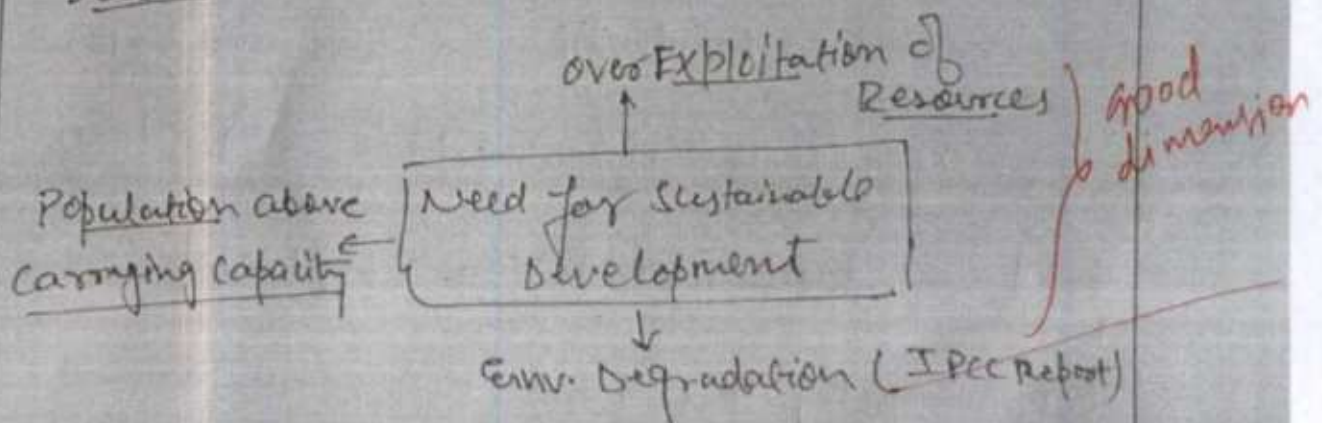 over Exploitation of
Resources
good
dimension
Population above
carrying capacity
Need for Sustainable
Development
Env. Degradation (IPCC Report)